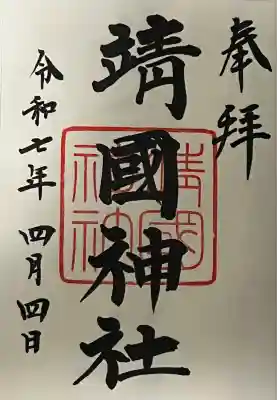 奉拝
靖國神社
令和七年 四月四日
靖國
神社